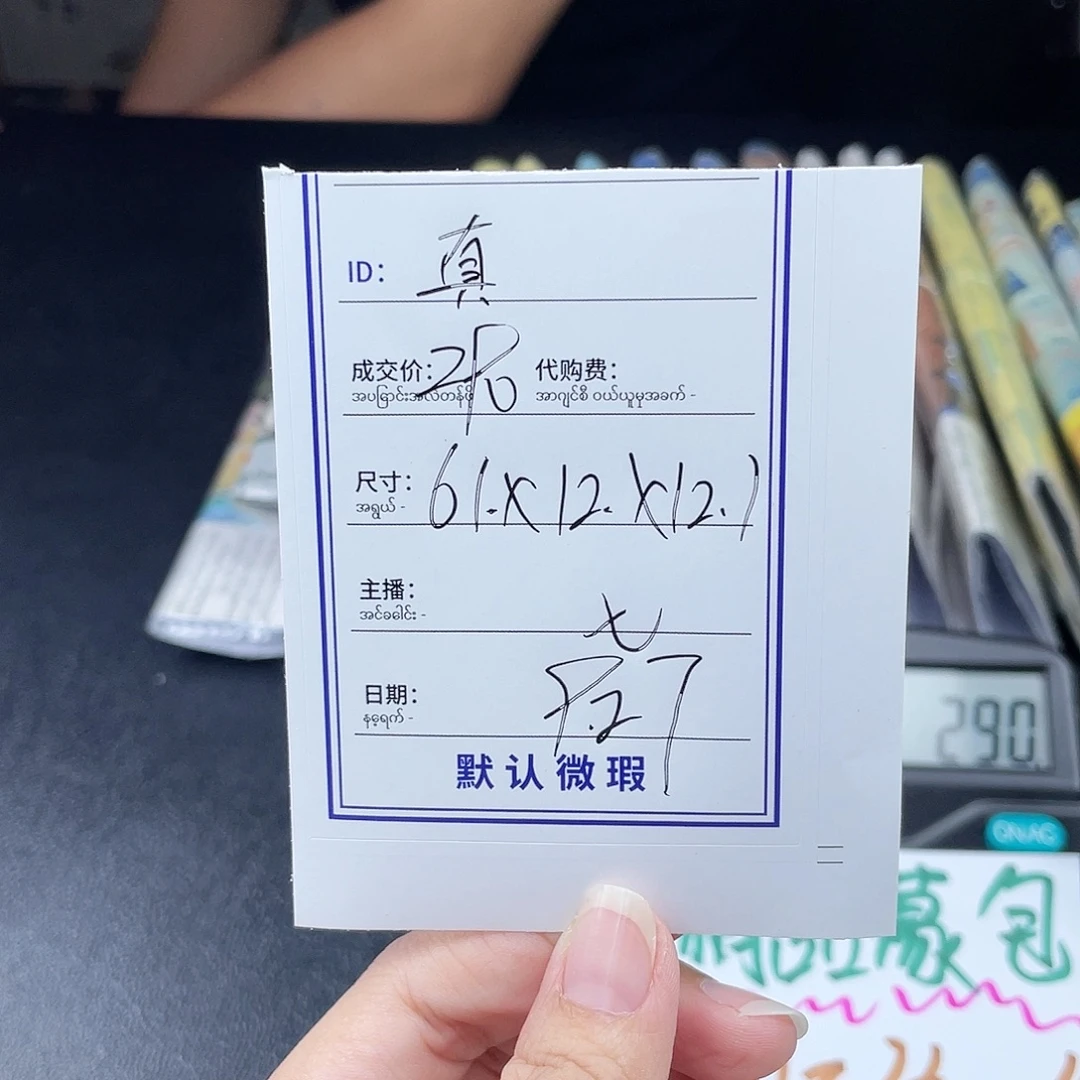 ID: 真
成交价: 290 代购费:
အပြောင်းအလဲတန်ဖိုး အာဂျင်စီ ဝယ်ယူမှုအခက် -
尺寸: 61.x12.x12.1
အရွယ် -
主播: 七
အင်ခေါင်း -
日期: 9.27
နေ့ရက် -
默认微瑕
290.
ON/AC
豪包